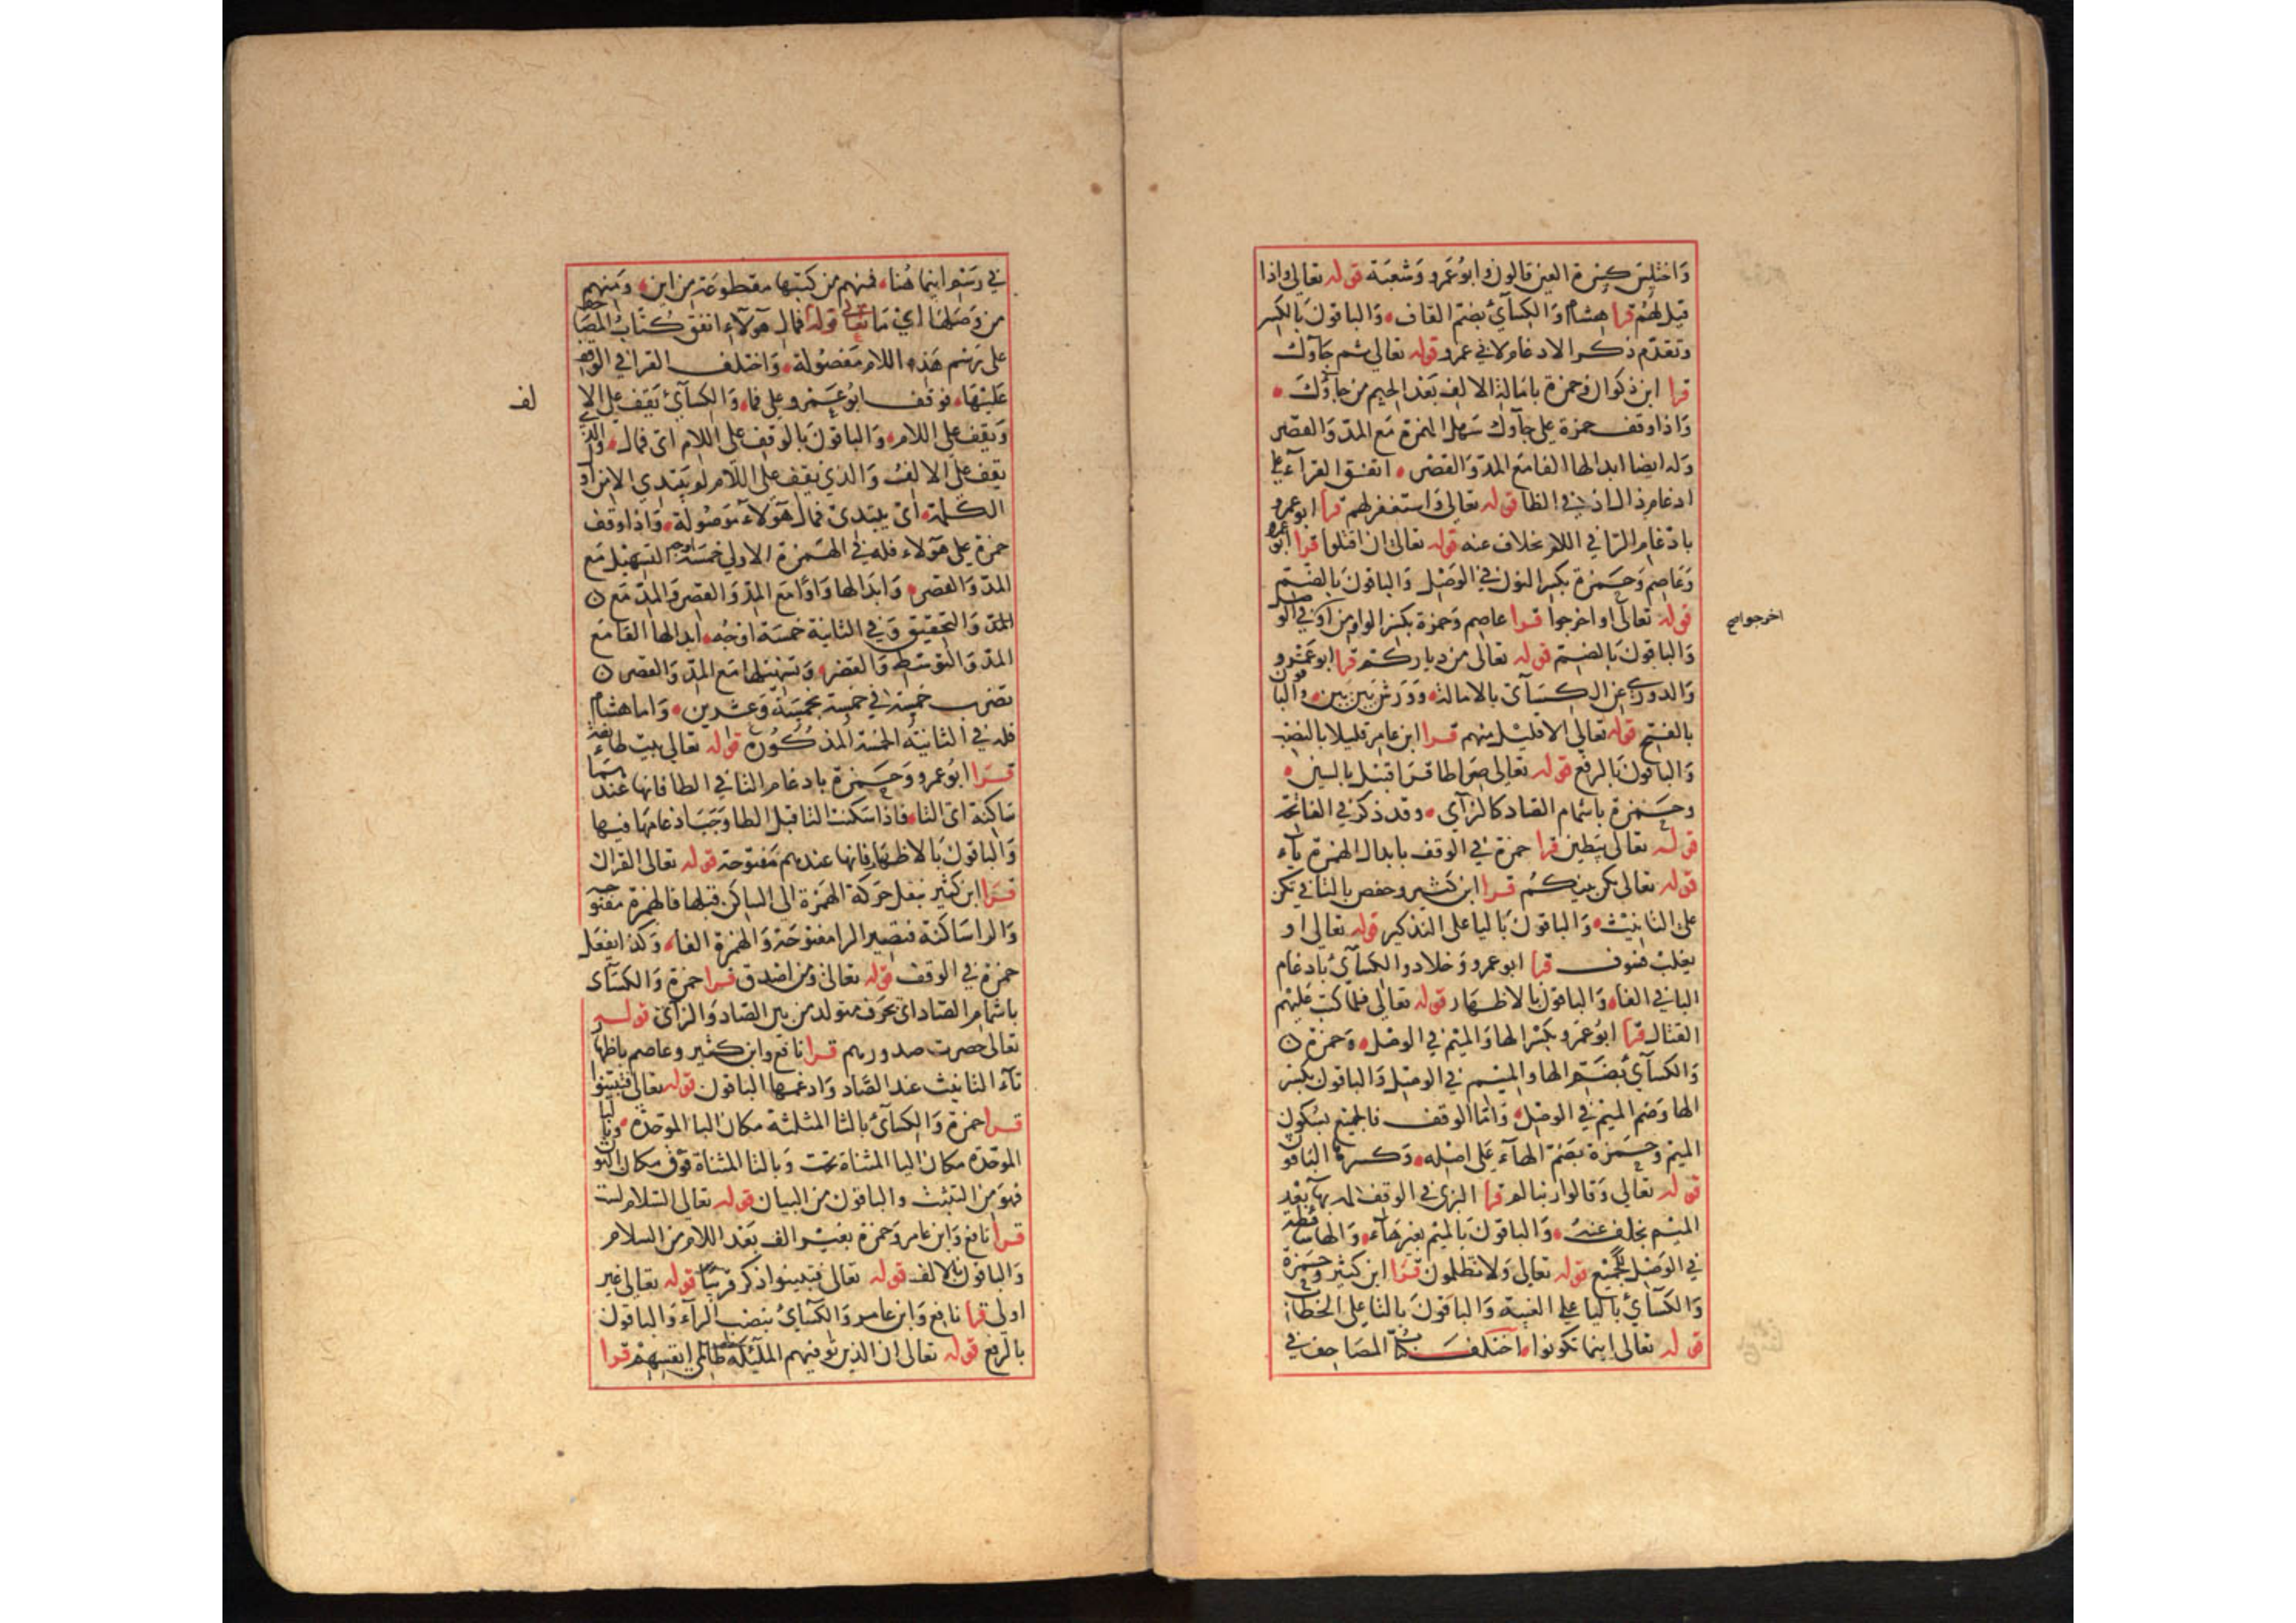 واختلس كسرة العين قالون وابو عمرو وشعبة قوله تعالى واذا
قيل لهم قرا هشام والكسآئي بضم القاف والباقون بالكسر
وتقدم ذكر الادغام لابي عمرو قوله تعالى ثم جآوك
قرا ابن ذكوان وحمزة بامالة الالف بعد الجيم من جاؤك
واذا وقف حمزة على جآوك سهل الهمزة مع المد والقصر
وله ايضا ابدالها الفا مع المد والقصر اتفق القرآء على
ادغام ذال اذ في الظا قوله تعالى واستغفر لهم قرا ابو عمرو
بادغام الرا في اللام بخلاف عنه قوله تعالى ان اقتلوا قرا ابو عمرو
وعاصم وحمزة بكسر النون في الوصل والباقون بالضم
قوله تعالى او اخرجوا قرا عاصم وحمزة بكسر الواو من او في الوصل
اخرجوا صح
والباقون بالضم قوله تعالى من دياركم قرا ابو عمرو
والدوري عن الكسآئي بالامالة وورش بين بين والباقون
بالفتح قوله تعالى الا قليل منهم قرا ابن عامر قليلا بالنصب
والباقون بالرفع قوله تعالى صراطا قرا قنبل بالسين
وحمزة باشمام الصاد كالزآي وقد ذكر في الفاتحة
قوله تعالى ليبطين قرا حمزة في الوقف بابدال الهمزة ياء
قوله تعالى يكن بينكم قرا ابن كثير وحفص بالتا في تكن
على التانيث والباقون باليا على التذكير قوله تعالى او
يغلب فسوف قرا ابو عمرو وخلاد والكسآئي بادغام
البا في الفاء والباقون بالاظهار قوله تعالى فلما كتب عليهم
القتال قرا ابو عمرو بكسر الها والميم في الوصل وحمزة
والكسآئي بضم الها والميم في الوصل والباقون بكسر
الها وضم الميم في الوصل واما الوقف فالجميع بسكون
الميم وحمزة بضم الهآء على اصله وكسرها الباقون
قوله تعالى وقالوا ربنا لم قرا البزى في الوقف لمه بهآء بعد
الميم بخلف عنه والباقون بالميم بغير هآء والها ساقطة
في الوصل للجميع قوله تعالى ولا تظلمون قرا ابن كثير وحمزة
والكسآئي باليا على الغيبة والباقون بالتا على الخطاب
قوله تعالى اينما تكونوا اختلف كتاب المصاحف في
في رسم اينما هنا فمنهم من كتبها مقطوعة من اين ومنهم
من وصلها اي ما قوله تعالى فمال هولاء اتفق كتاب المصاحف
على رسم هذه اللام مفصولة واختلف القرا في الوقف
عليها فوقف ابو عمرو على فما والكسآئي يقف على الا
لف
ويقف على اللام والباقون بالوقف على اللام اى فمال والذي
يقف على الالف والذي يقف على اللام لم يبتدي الا من او
الكلمة اى يبتدئ فمال هولاء موصولة واذا وقف
حمزة على هولاء فله في الهمزة الاولى خمسة اوجه التسهيل مع
المد والقصر وابدالها واوا مع المد والقصر والمد مع
المد والتحقيق وفي الثانية خمسة اوجه ابدالها الفا مع
المد والتوسط والقصر وتسهيلها مع المد والقصر
تضرب خمسة في خمسة بخمسة وعشرين واما هشام
فله في الثانية الخمسة المذكورة قوله تعالى بيت طائفة
قرا ابو عمرو وحمزة بادغام التا في الطا فانها عندهما
ساكنة اى التاء فاذا سكنت التا قبل الطا وجب ادغامها فيها
والباقون بالاظهار فانها عندهم مفتوحة قوله تعالى القران
قرا ابن كثير بنقل حركة الهمزة الى الساكن قبلها فالهمزة مفتوحة
والرا ساكنة فتصير الرا مفتوحة والهمزة الفا وكذا يفعل
حمزة في الوقف قوله تعالى ومن اصدق قرا حمزة والكسآى
باشمام الصاد اى بحرف متولد من بين الصاد والزآى قوله
تعالى حصرت صدورهم قرا نافع وابن كثير وعاصم باظهار
تآء التانيث عند الصاد وادغمها الباقون قوله تعالى فتبينوا
قرا حمزة والكسآئ بالثا المثلثة مكان البا الموحدة وبالبا
الموحدة مكان اليا المثناة تحت وبالتا المثناة فوق مكان النون
فهو من التثبت والباقون من البيان قوله تعالى السلام لست
قرا نافع وابن عامر وحمزة بغير الف بعد اللام من السلام
والباقون بالالف قوله تعالى فتبينوا ذكر قريبا قوله تعالى غير
اولى قرا نافع وابن عامر والكسآئ بنصب الرآء والباقون
بالرفع قوله تعالى ان الذين توفيهم المليكة ظالمي انفسهم قرا